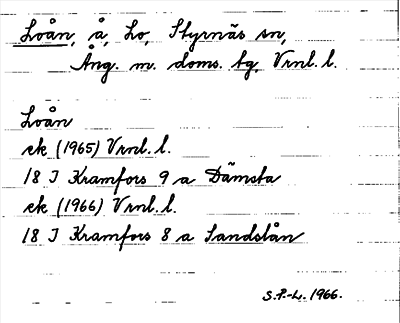 Loån, å, Lo, Styrnäs sn,
Ång. m. doms. tg, Vrnl. l.
Loån
ek (1965) Vrnl. l.
18 I Kramfors 9 a Dämsta
ek (1966) Vrnl. l.
18 I Kramfors 8 a Sandslån
S.P.-L. 1966.